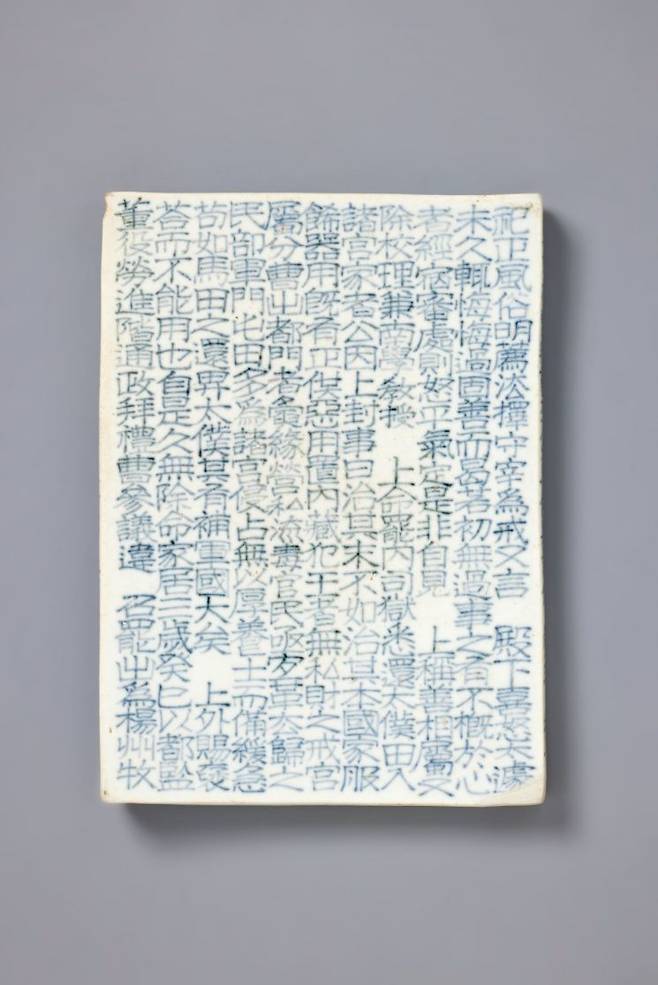 祀正風俗明薦法擇守宰爲戒又言 殿下喜怒太遽
未久輒悔悔過固善而曷若初無過事之者不槪於心
者經宿審處則怒平氣定是非自見 上稱善相屬又
除校理兼南學敎授 上命罷內司獄悉還太僕田入
諸宮家者公因上封事曰治其末不如治其本國家服
飾器用旣有正供惡用置內藏犯王者無私財之戒宮
屬分曹出都門者夤緣營私流毒官民亟夕革太歸之
民部軍門屯田多爲諸宮侵占無以厚養士而備緩急
苟如馬田之還畀太僕其有補軍國大矣 上外賜褒
答而不能用也自是久無除命家居三歲癸巳以都監
董役勞進階通政拜禮曹參議違 召罷出爲楊州牧